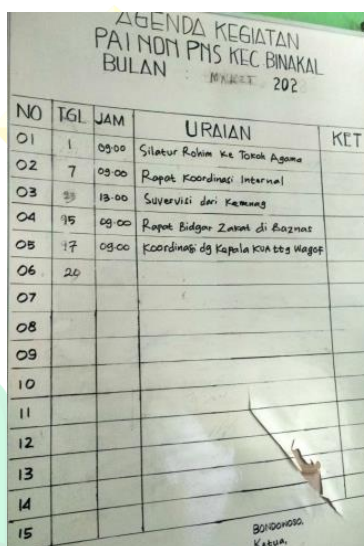 AGENDA KEGIATAN
PAI NON PNS KEC. BINAKAL
BULAN : MARET 202
NO TGL JAM URAIAN KET
01 1 09.00 Silatur Rohim ke Tokoh Agama
02 7 09.00 Rapat Koordinasi Internal
03 13.00 Suvervisi dari Kemnag
04 15 09.00 Rapat Bidgar Zakat di Baznas
05 17 09.00 Koordinasi dg Kepala KUA ttg Wagof
06 20
07
08
09
10
11
12
13
14
15
BONDOWOSO,
Ketua,